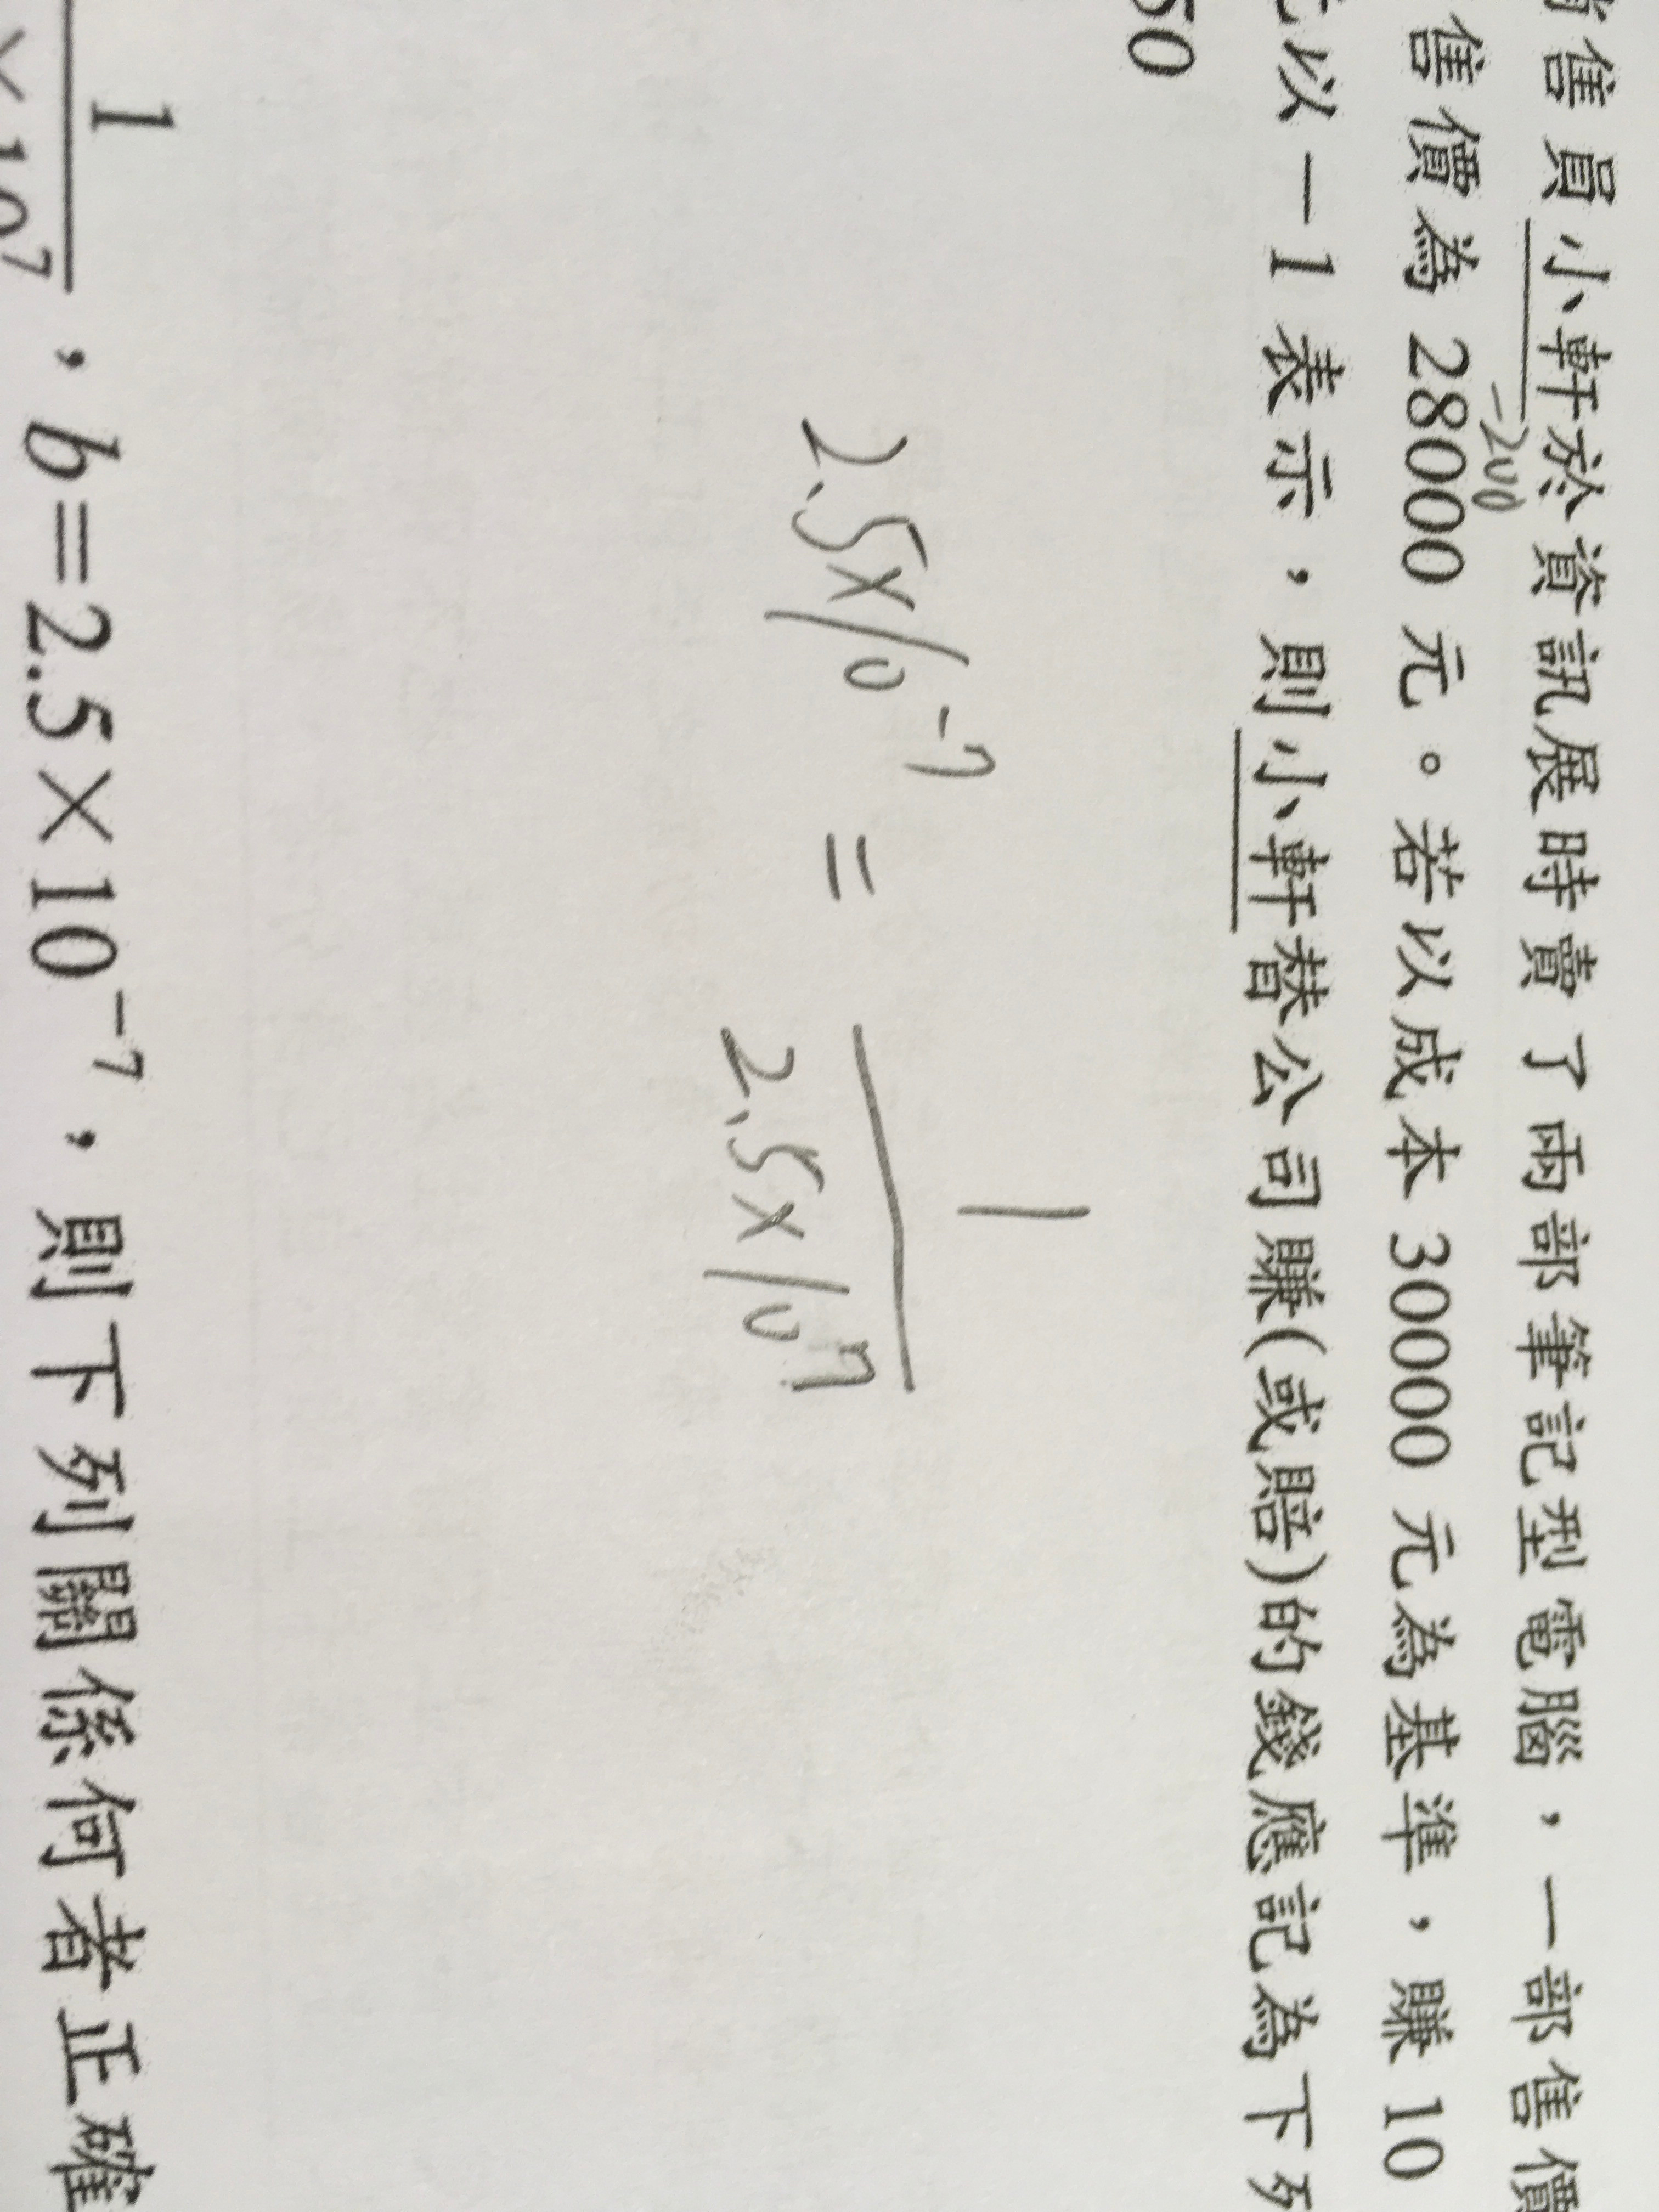 售員小軒於資訊展時賣了兩部筆記型電腦，一部售價
-200
售價為 28000 元。若以成本 30000 元為基準，賺 10
以－1 表示，則小軒替公司賺(或賠)的錢應記為下列
50
2.5×10⁻⁷ = 1
2.5×10⁷
1
×10⁷ ，b＝2.5×10⁻⁷，則下列關係何者正確